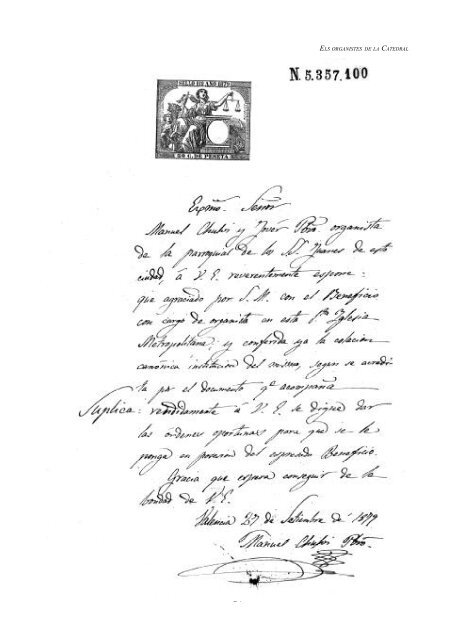 ELS ORGANISTES DE LA CATEDRAL
N. 5.357.100
SELLO 11º AÑO 1879
50 C. DE PESETA
Exmo. Señor
Manuel Chulvi y Pbro. organista
de la parroquial de los Sts. Juanes de esta
ciudad, á V. E. reverentemente espone:
que agraciado por S. M. con el Beneficio
con cargo de organista en esta Sta. Iglesia
Metropolitana; y conferida ya la
canónica institucion del mismo, segun se acredi
ta por el documento qe. acompaña
Suplica: rendidamente á V. E. se digne dar
las ordenes oportunas para que se le
ponga en posesion del espresado Beneficio.
Gracia que espera conseguir de la
bondad de V. E.
Valencia 27 de Setiembre de 1879
Manuel Chulvi Pbro.